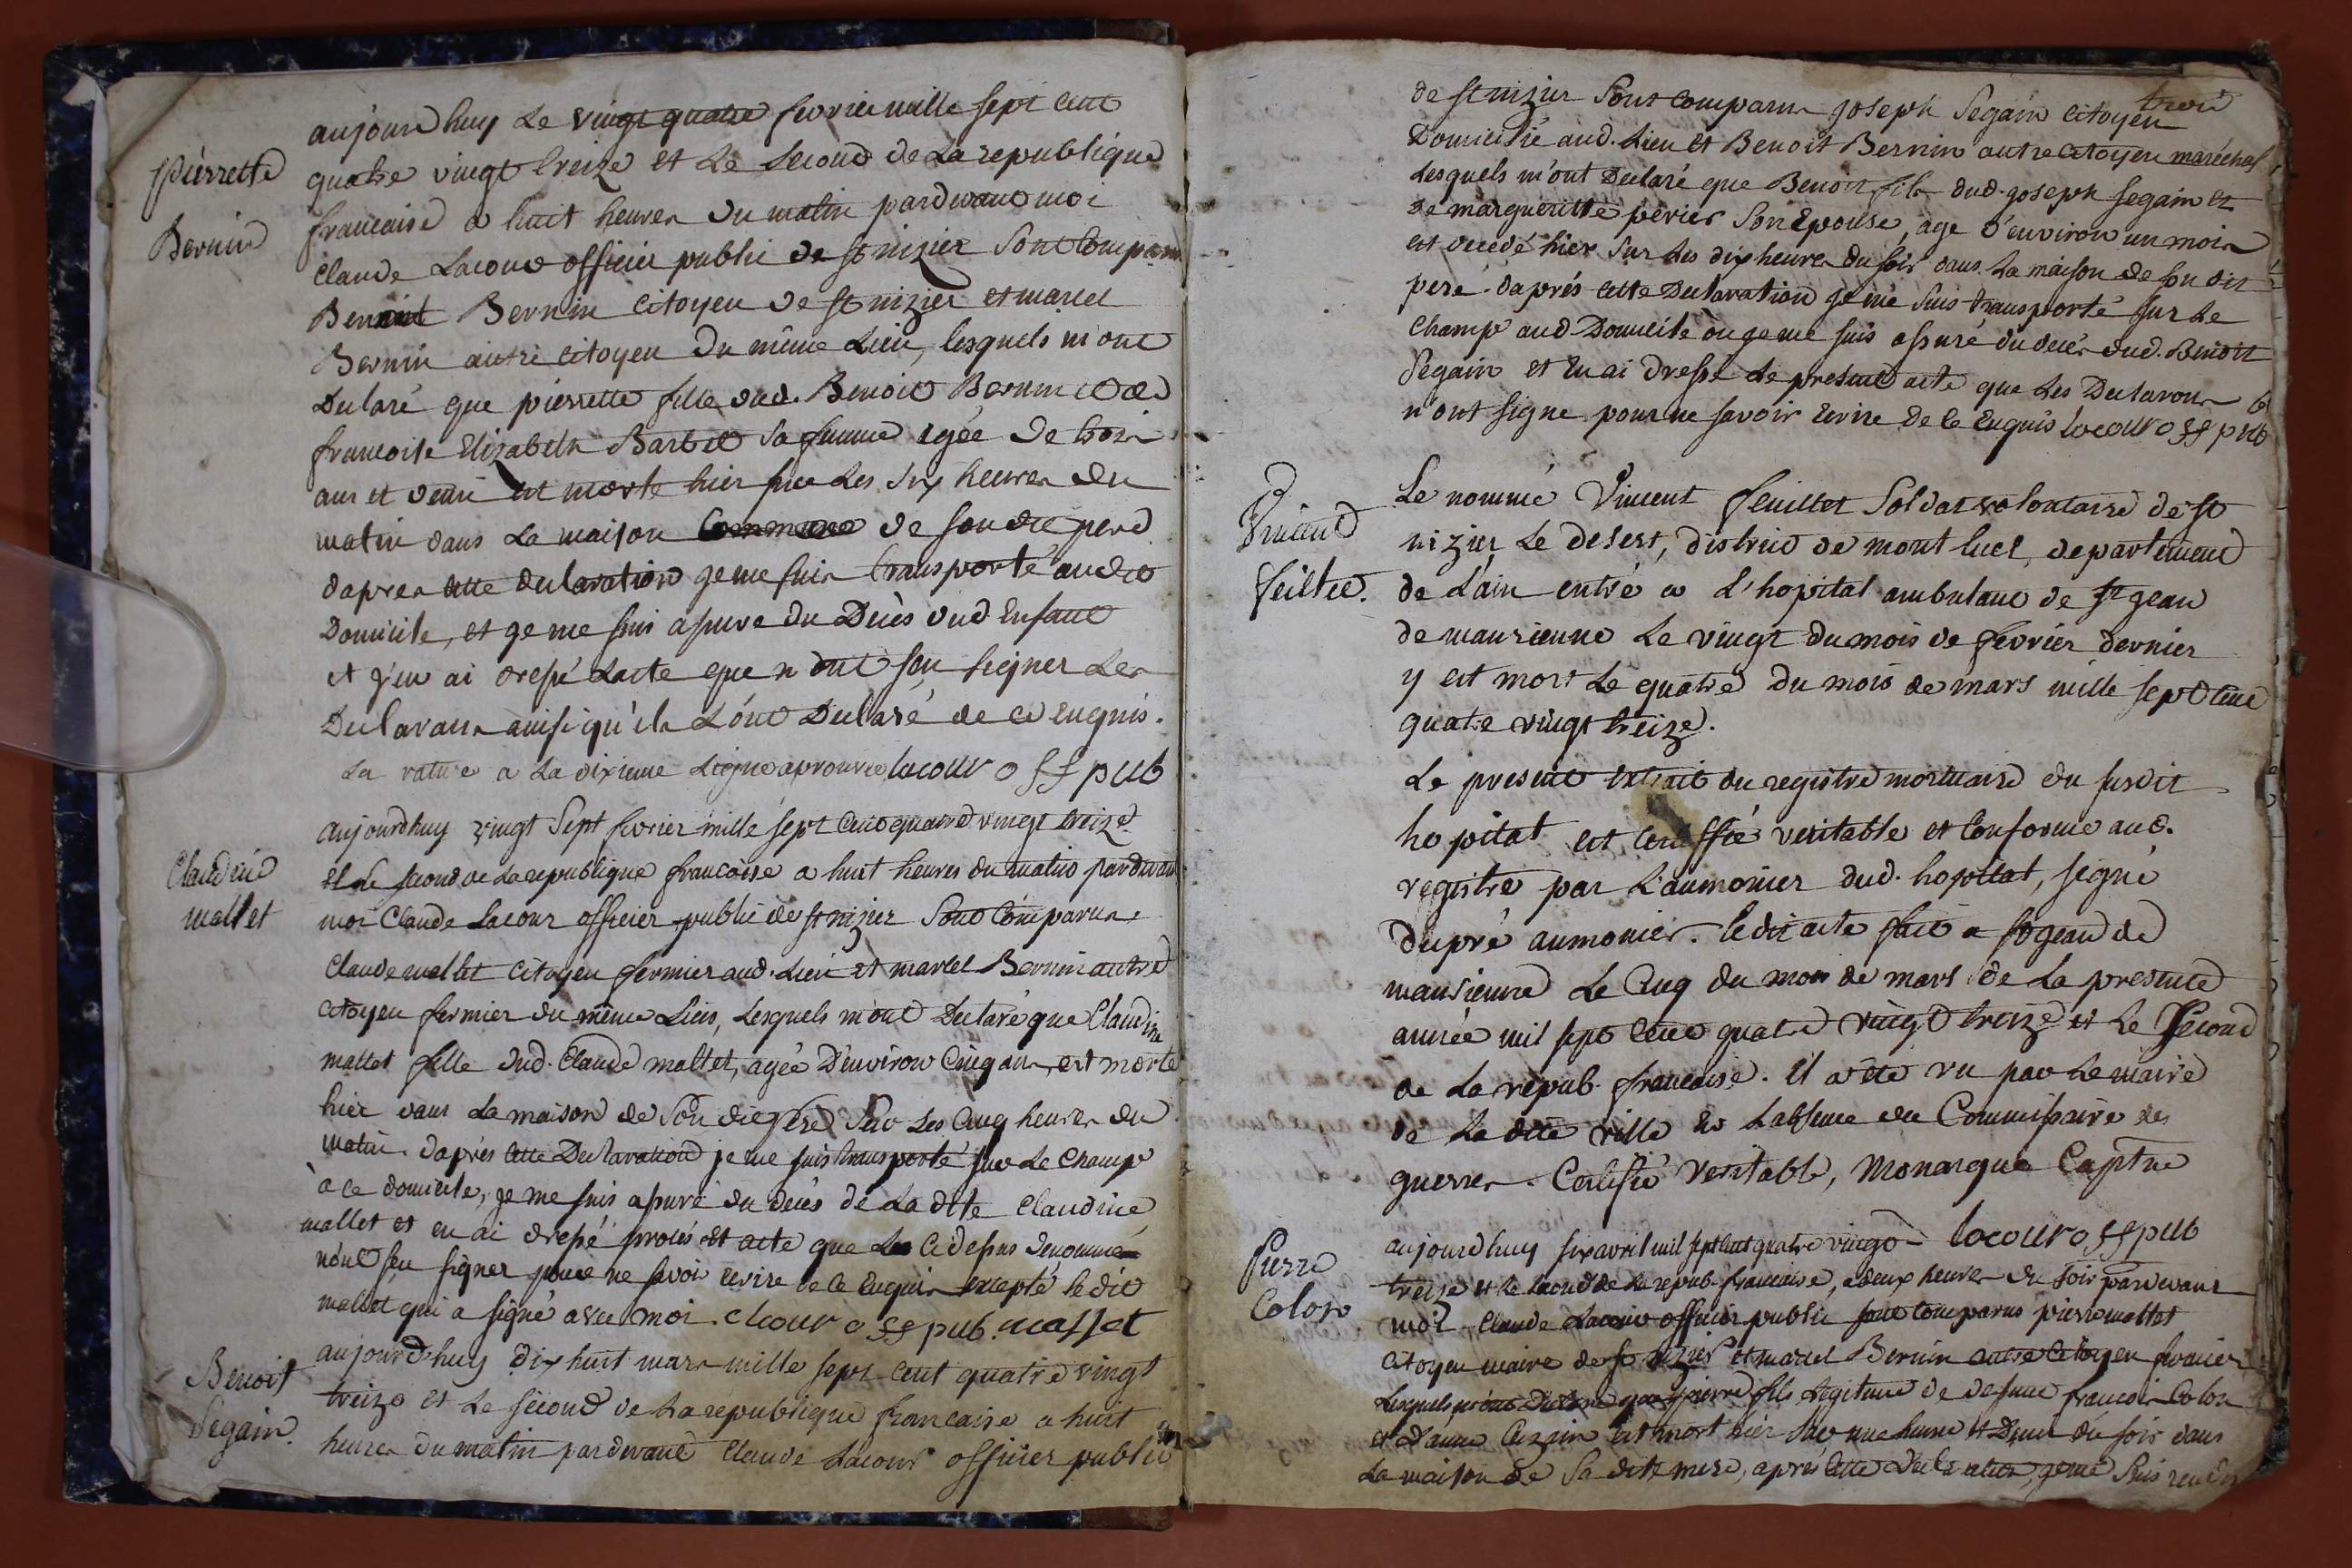 Pierrette
Bernin
aujourdhuy le vingt quatre fevrier mille sept cent
quatre vingt treize et le second de la republique
francaise a huit heures du matin pardevant moi
claude Lacour officier public de st nizier sont comparus
Benoit Bernin citoyen de st nizier et marcel
Bernin autre citoyen du même Lieu, lesquels m'ont
Declaré que pierrette fille dud. Benoit Bernin et de
francoise Elizabeth Barbet sa femme agée de trois
ans et demi est morte hier sur les six heures du
matin dans la maison commune de son dit pere
dapres cette declaration je me suis transporté audit
Domicile, et je me suis assuré du Décès dud Enfant
et j'en ai dressé Lacte que n'ont seu signer les
Declarans ainsi qu'ils L'ont Declaré de ce enquis.
La rature a La dixieme Ligne aprouvée lacour off pub
Claudine
mallet
aujourdhuy vingt sept fevrier mille sept cent quatre vingt treize
et le second de la republique francaise a huit heures du matin pardevant
moi Claude Lacour officier public de st nizier sont comparus
Claude mallet citoyen fermier aud. Lieu et marcel Bernin autre
citoyen fermier du même Lieu, Lesquels m'ont Declaré que Claudine
mallet fille dud. Claude mallet, agée D'environ cinq ans, est morte
hier dans la maison de son dit pere sur les cinq heures du
matin. d'aprés cette Declaration je me suis transporté sur le champ
à ce domicile, je me suis assuré du décés de la dite Claudine
mallet et en ai dressé procés et acte que les cidessus denommés
n'ont seu signer pour ne savoir ecrire de ce enquis excepté le dit
mallet qui a signé avec moi. lacour off pub. mallet
Benoit
Segain.
aujourdhuy dix huit mars mille sept cent quatre vingt
treize et le second de la republique francaise a huit
heures du matin pardevant claude Lacour officier public
de st nizier sont comparus joseph Segain citoyen
Domicilié aud. Lieu et Benoit Bernin autre citoyen maréchal
Lesquels m'ont Declaré que Benoit fils dud. joseph segain et
de margueritte perier son Epouse, age d'environ un mois
est decedé hier sur les dix heures du soir dans la maison de son dit
pere. daprés cette Declaration je me suis transporté sur le
champ aud. Domicile où je me suis assuré du decés dud. Benoit
Segain et en ai dressé le present acte que les Declarans
n'ont signé pour ne savoir Ecrire de ce enquis lacour off pub
Vincent
feuillet.
Le nommé Vincent feuillet soldat volontaire de st
nizier le desert, district de mont luel, departement
de Lain entré a L'hopital ambulant de st jean
de maurienne le vingt du mois de fevrier dernier
y est mort le quatre du mois de mars mille sept cent
quatre vingt treize.
Le present extrait du registre mortuaire du susdit
hopital est certiffié veritable et conforme aud.
registre par L'aumonier dud. hopital, signé
Dupré aumonier. ledit acte fait a st jean de
maurienne le cinq du mois de mars de la presente
année mil sept cent quatre vingt treize et le second
de la repub. francaise. il a été vu par le maire
de la dite ville en Labsence du Commissaire des
guerres. Certifié veritable, Monarque Captne
lacour off pub
Pierre
Colon
aujourdhuy six avril mil sept cent quatre vingt
treize et le second de la repub. francaise, a deux heures du soir pardevant
moi Claude Lacour officier public sont comparus pierre mallet
citoyen maire de st nizier et marcel Bernin autre citoyen fermier
Lesquels m'ont Declaré que pierre fils Legitime de defunt francois Colon
et d'anne Cuzin est mort hier sur une heure et Demi du soir dans
La maison de sa dite mere, après cette declaration, je me suis rendu